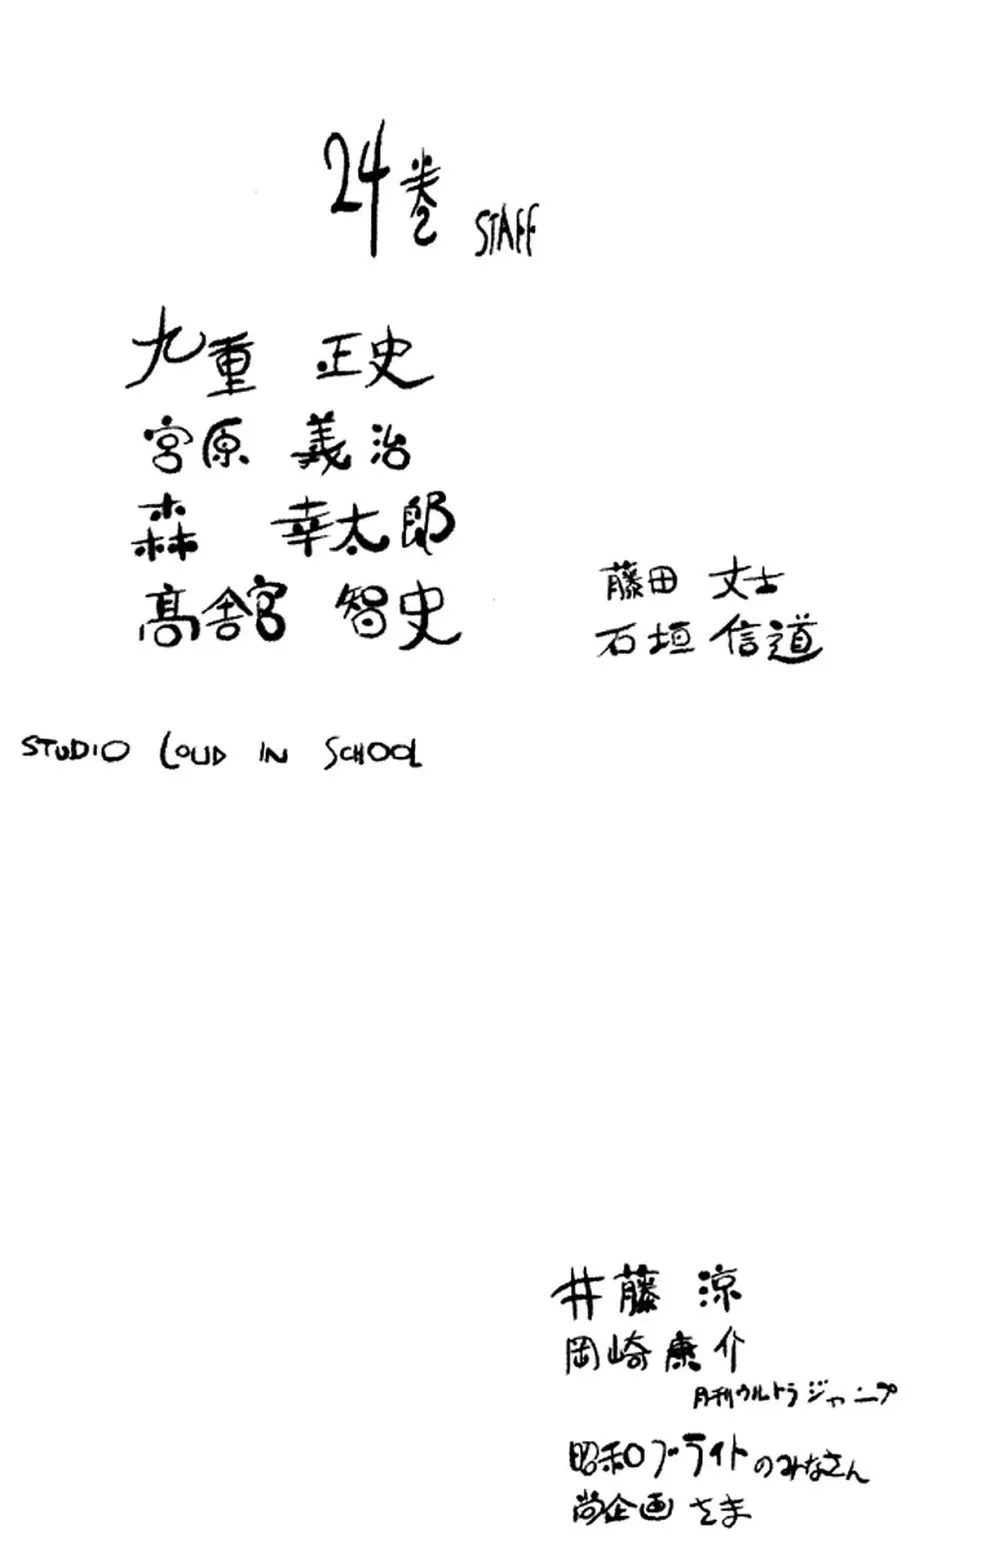 24巻 STAFF
九重 正史
宮原 義治
森 幸太郎
髙舘 智史
藤田 丈士
石垣 信道
STUDIO LOUD IN SCHOOL
井藤 涼
岡崎康介
月刊ウルトラジャンプ
昭和ブライトのみなさん
尚企画 さま